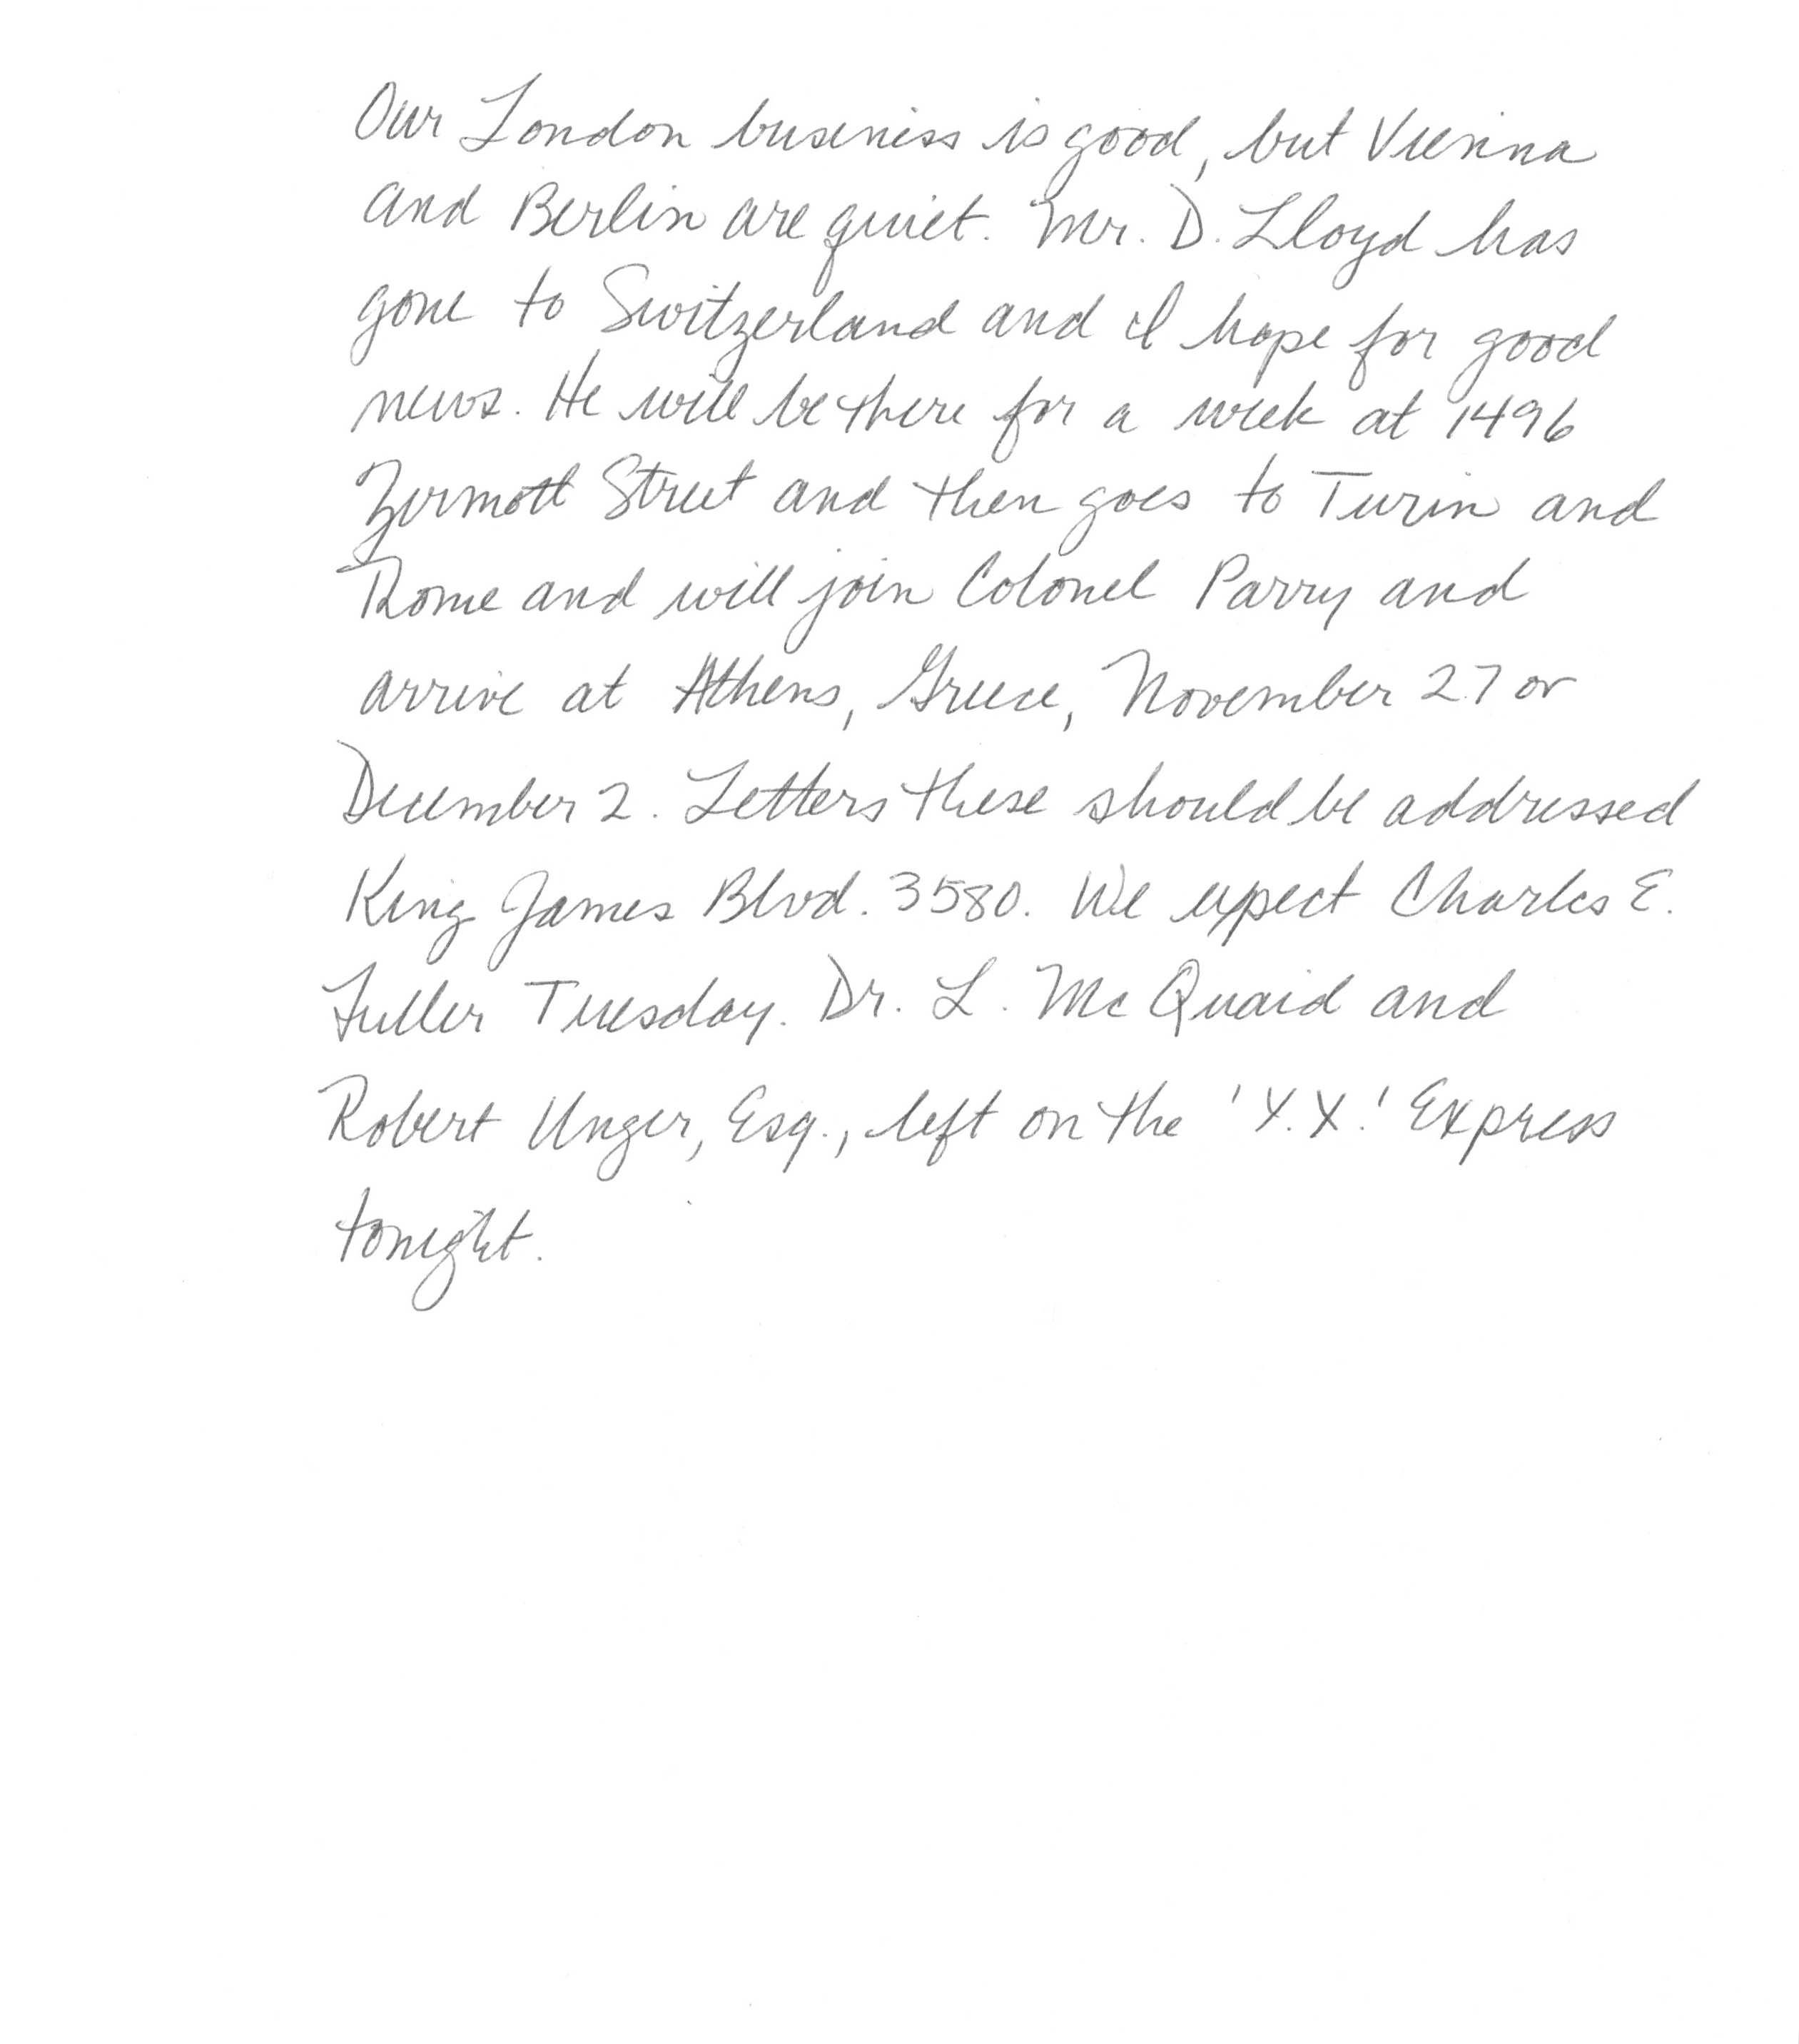 Our London business is good, but Vienna
and Berlin are quiet. Mr. D. Lloyd has
gone to Switzerland and I hope for good
news. He will be there for a week at 1496
Zermott Street and then goes to Turin and
Rome and will join Colonel Parry and
arrive at Athens, Greece, November 27 or
December 2. Letters these should be addressed
King James Blvd. 3580. We expect Charles E.
Fuller Tuesday. Dr. L. Mc Quaid and
Robert Unger, Esq., left on the 'Y.X.' Express
tonight.